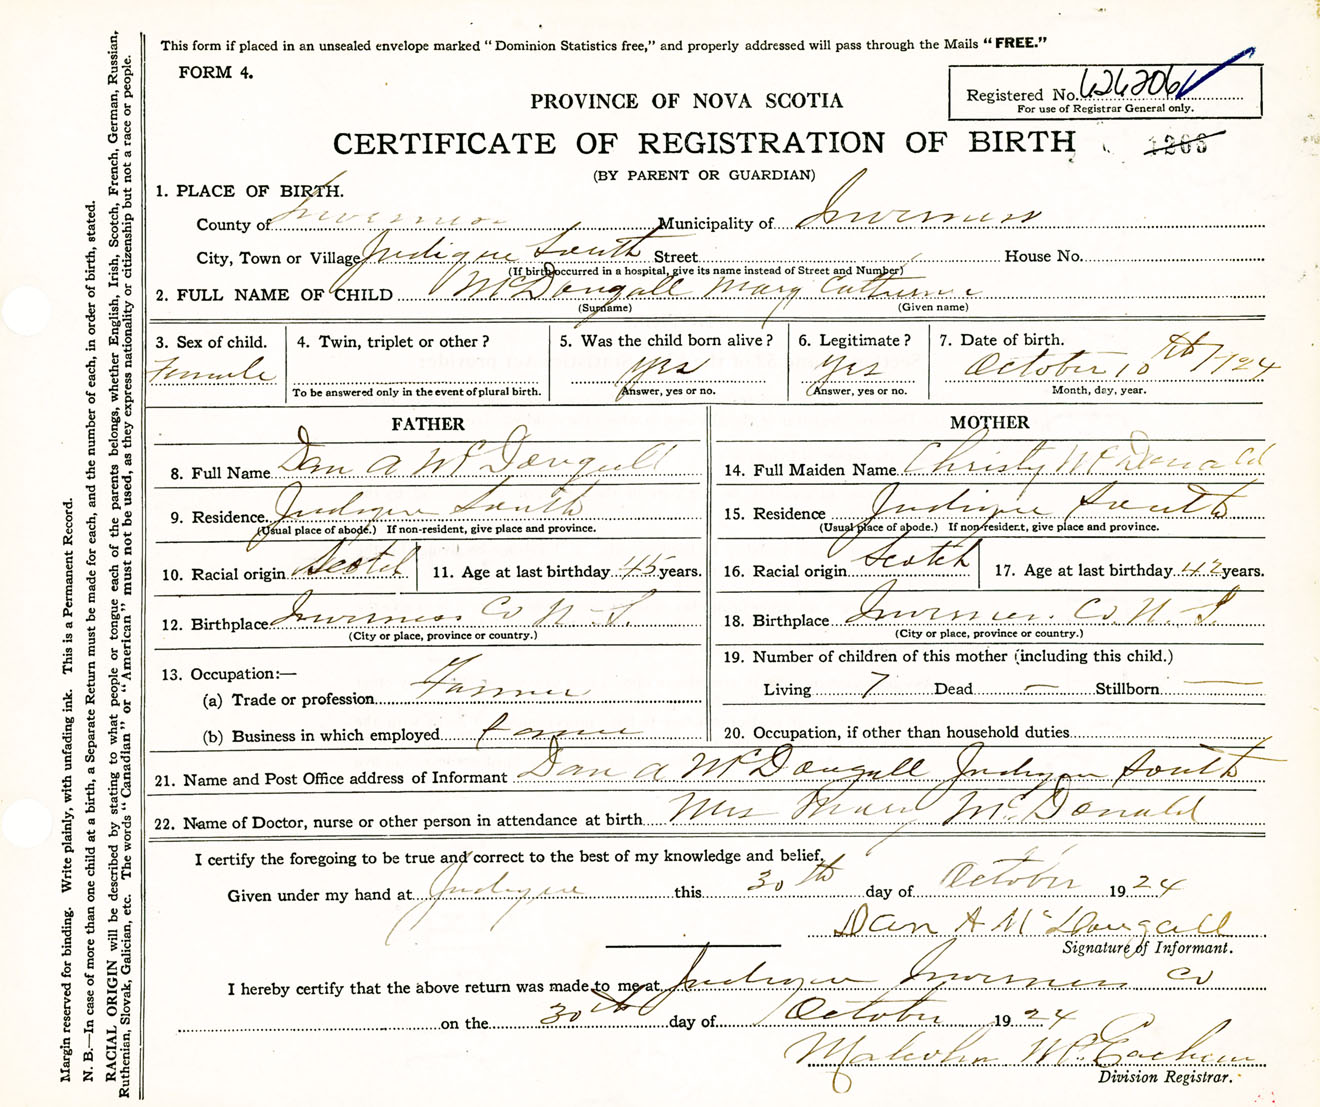 This form if placed in an unsealed envelope marked "Dominion Statistics free," and properly addressed will pass through the Mails "FREE."
FORM 4.
Registered No. 626206
For use of Registrar General only.
PROVINCE OF NOVA SCOTIA
CERTIFICATE OF REGISTRATION OF BIRTH
(BY PARENT OR GUARDIAN)
1. PLACE OF BIRTH.
County of Inverness Municipality of Inverness
City, Town or Village Judique South Street House No.
(If birth occurred in a hospital, give its name instead of Street and Number)
2. FULL NAME OF CHILD McDougall Mary Catherine
(Surname) (Given name)
3. Sex of child. 4. Twin, triplet or other? 5. Was the child born alive? 6. Legitimate? 7. Date of birth.
Female yes Yes October 10th 1924
To be answered only in the event of plural birth. Answer, yes or no. Answer, yes or no. Month, day, year.
FATHER MOTHER
8. Full Name Dan A McDougall 14. Full Maiden Name Christy McDonald
9. Residence. Judique South 15. Residence Judique South
(Usual place of abode.) If non-resident, give place and province. (Usual place of abode.) If non-resident, give place and province.
10. Racial origin Scotch 11. Age at last birthday 45 years. 16. Racial origin Scotch 17. Age at last birthday 42 years.
12. Birthplace Inverness Co N. S. 18. Birthplace Inverness. Co. N. S.
(City or place, province or country.) (City or place, province or country.)
13. Occupation:— 19. Number of children of this mother (including this child.)
(a) Trade or profession Farmer Living 7 Dead — Stillborn —
(b) Business in which employed farmer 20. Occupation, if other than household duties
21. Name and Post Office address of Informant Dan A McDougall Judique South
22. Name of Doctor, nurse or other person in attendance at birth Mrs Mary McDonald
I certify the foregoing to be true and correct to the best of my knowledge and belief,
Given under my hand at Judique this 30th day of October 1924
Dan A McDougall
Signature of Informant.
I hereby certify that the above return was made to me at Judique Inverness Co
on the 30th day of October 1924
Malcolm McEachern
Division Registrar.
Margin reserved for binding. Write plainly, with unfading ink. This is a Permanent Record.
N. B.—In case of more than one child at a birth, a Separate Return must be made for each, and the number of each, in order of birth, stated.
RACIAL ORIGIN will be described by stating to what people or tongue each of the parents belongs, whether English, Irish, Scotch, French, German, Russian,
Ruthenian, Slovak, Galician, etc. The words "Canadian" or "American" must not be used, as they express nationality or citizenship but not a race or people.